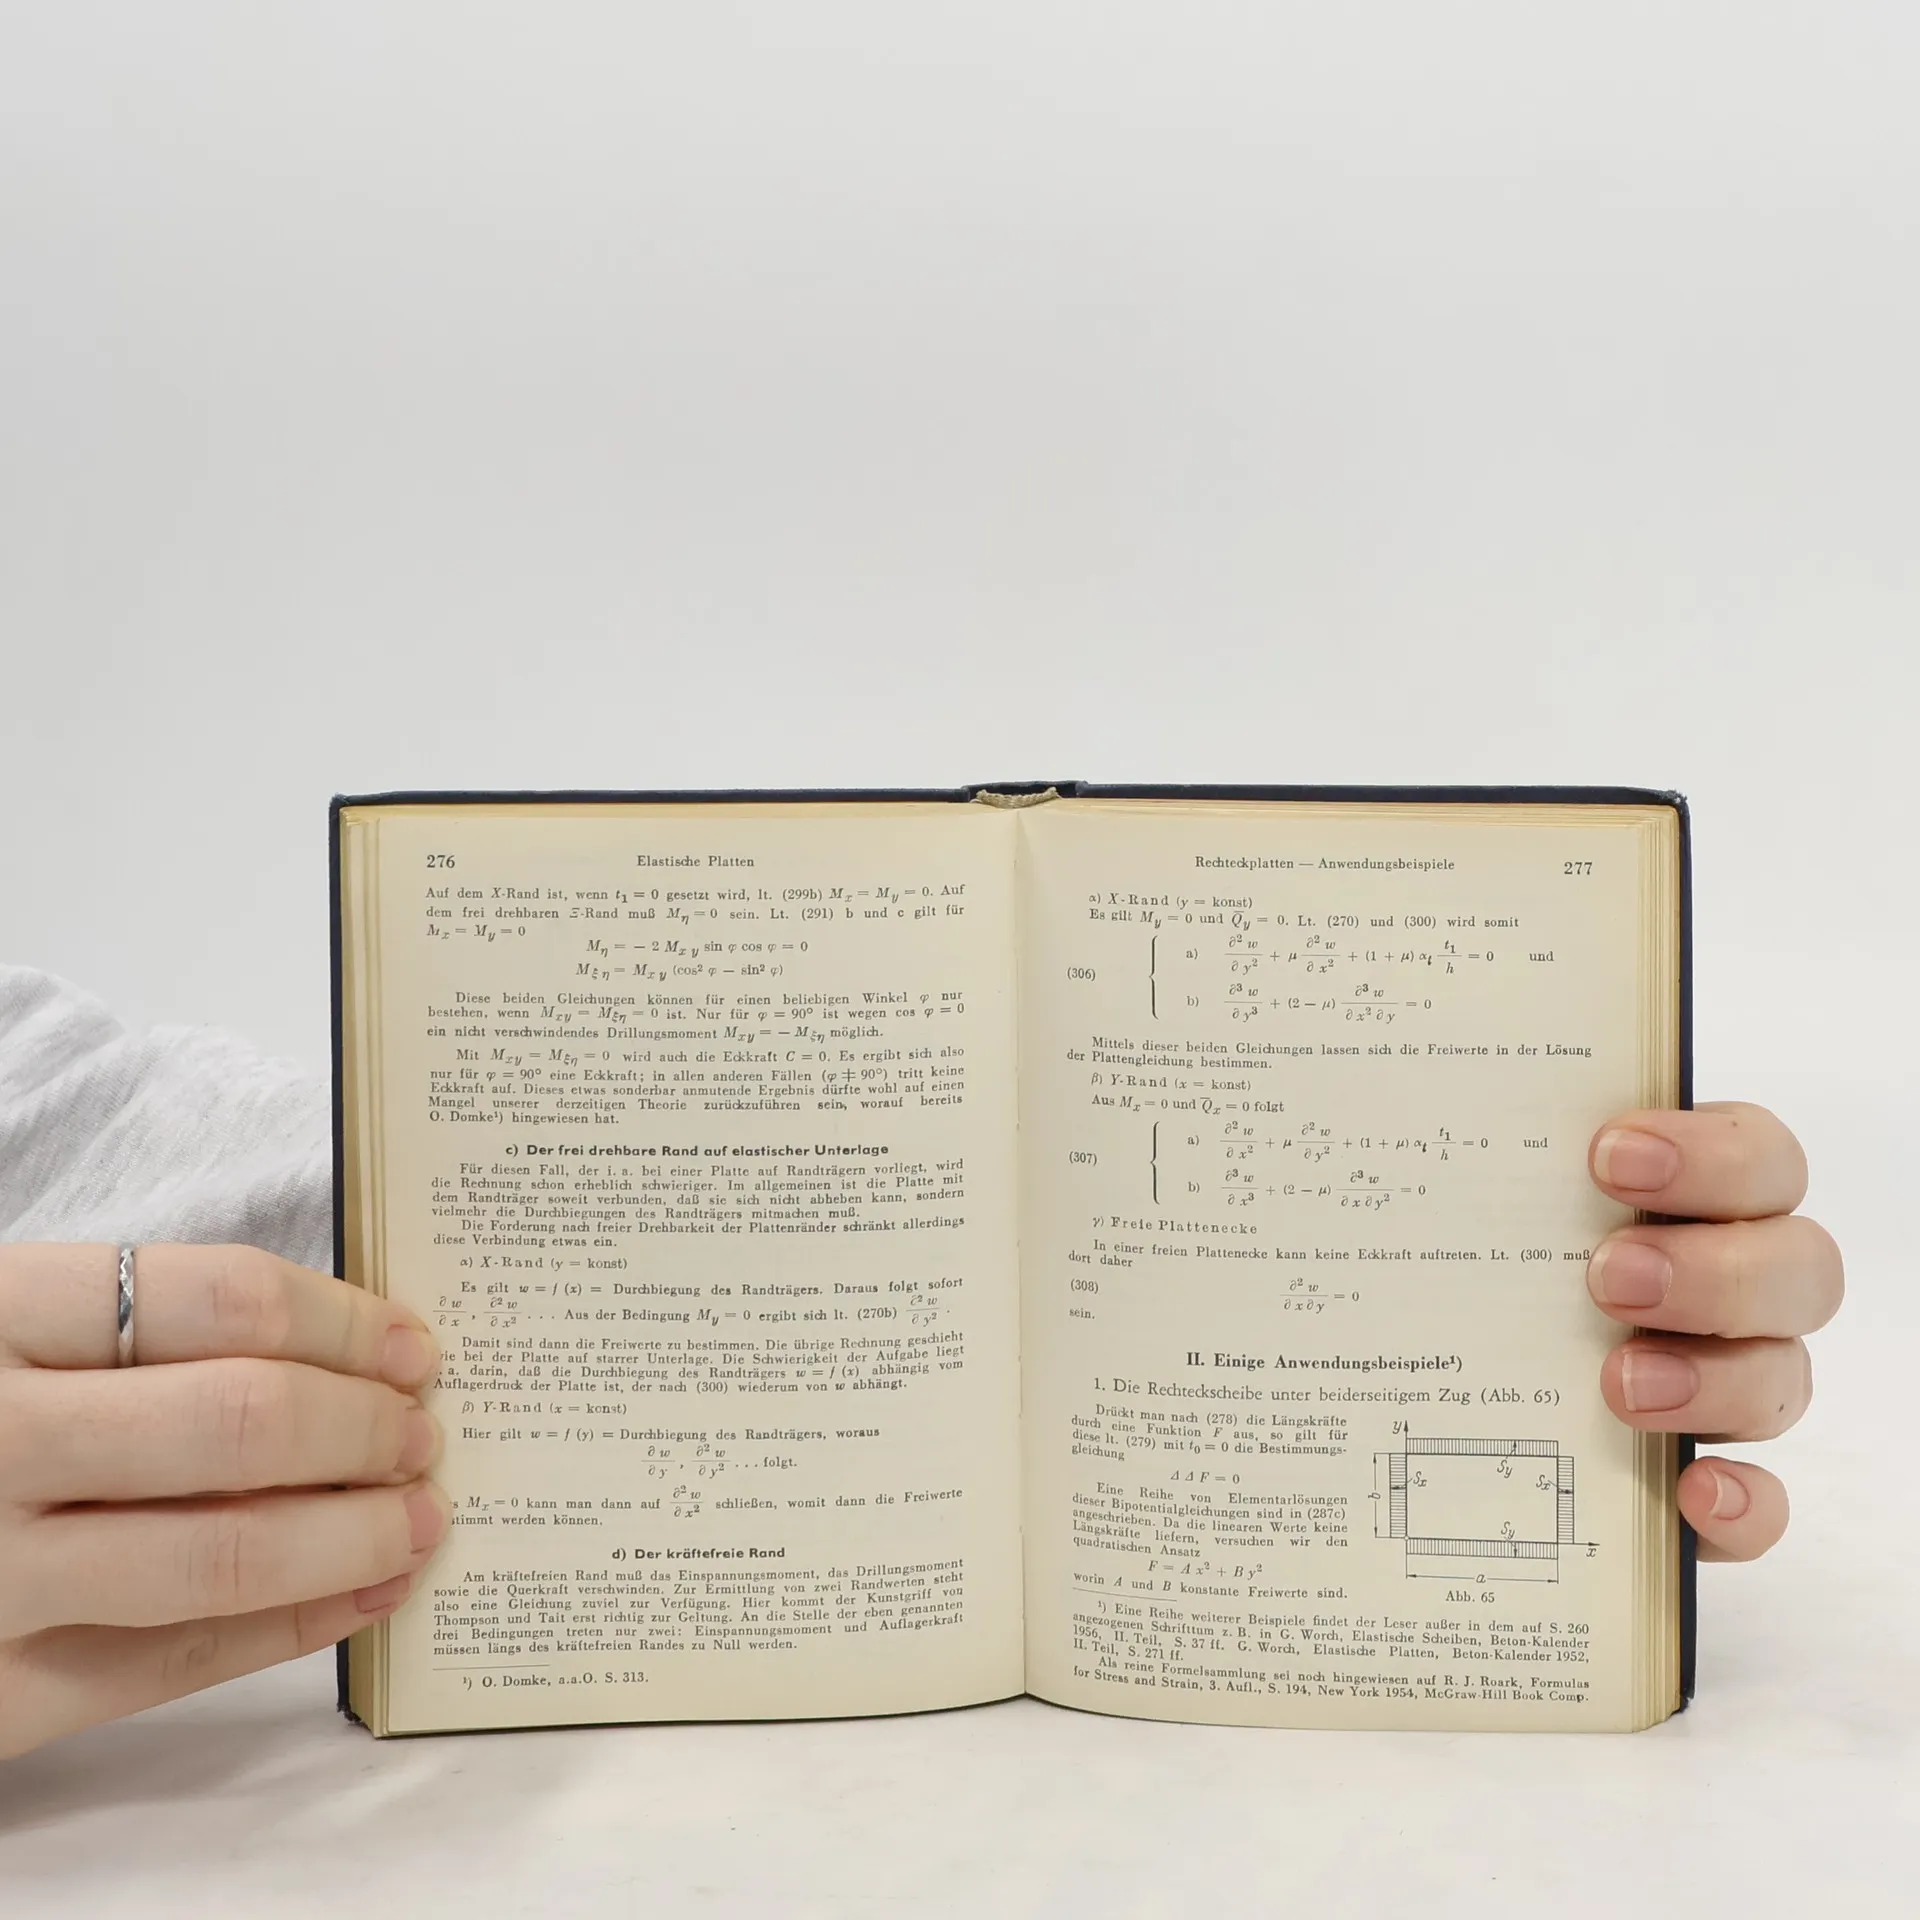 276 Elastische Platten
Auf dem X-Rand ist, wenn t₁ = 0 gesetzt wird, lt. (299b) Mₓ = M_y = 0. Auf
dem frei drehbaren Ξ-Rand muß M_η = 0 sein. Lt. (291) b und c gilt für
Mₓ = M_y = 0
M_η = — 2 M_xy sin φ cos φ = 0
M_ξη = M_xy (cos² φ — sin² φ)
Diese beiden Gleichungen können für einen beliebigen Winkel φ nur
bestehen, wenn M_xy = M_ξη = 0 ist. Nur für φ = 90° ist wegen cos φ = 0
ein nicht verschwindendes Drillungsmoment M_xy = — M_ξη möglich.
Mit M_xy = M_ξη = 0 wird auch die Eckkraft C = 0. Es ergibt sich also
nur für φ = 90° eine Eckkraft; in allen anderen Fällen (φ ≠ 90°) tritt keine
Eckkraft auf. Dieses etwas sonderbar anmutende Ergebnis dürfte wohl auf einen
Mangel unserer derzeitigen Theorie zurückzuführen sein, worauf bereits
O. Domke¹) hingewiesen hat.
c) Der frei drehbare Rand auf elastischer Unterlage
Für diesen Fall, der i. a. bei einer Platte auf Randträgern vorliegt, wird
die Rechnung schon erheblich schwieriger. Im allgemeinen ist die Platte mit
dem Randträger soweit verbunden, daß sie sich nicht abheben kann, sondern
vielmehr die Durchbiegungen des Randträgers mitmachen muß.
Die Forderung nach freier Drehbarkeit der Plattenränder schränkt allerdings
diese Verbindung etwas ein.
α) X-Rand (y = konst)
Es gilt w = f (x) = Durchbiegung des Randträgers. Daraus folgt sofort
∂w/∂x, ∂²w/∂x² . . . Aus der Bedingung M_y = 0 ergibt sich lt. (270b) ∂²w/∂y².
Damit sind dann die Freiwerte zu bestimmen. Die übrige Rechnung geschieht
wie bei der Platte auf starrer Unterlage. Die Schwierigkeit der Aufgabe liegt
. a. darin, daß die Durchbiegung des Randträgers w = f (x) abhängig vom
Auflagerdruck der Platte ist, der nach (300) wiederum von w abhängt.
β) Y-Rand (x = konst)
Hier gilt w = f (y) = Durchbiegung des Randträgers, woraus
∂w/∂y, ∂²w/∂y² . . . folgt.
s Mₓ = 0 kann man dann auf ∂²w/∂x² schließen, womit dann die Freiwerte
stimmt werden können.
d) Der kräftefreie Rand
Am kräftefreien Rand muß das Einspannungsmoment, das Drillungsmoment
sowie die Querkraft verschwinden. Zur Ermittlung von zwei Randwerten steht
also eine Gleichung zuviel zur Verfügung. Hier kommt der Kunstgriff von
Thompson und Tait erst richtig zur Geltung. An die Stelle der eben genannten
drei Bedingungen treten nur zwei: Einspannungsmoment und Auflagerkraft
müssen längs des kräftefreien Randes zu Null werden.
¹) O. Domke, a.a.O. S. 313.
Rechteckplatten — Anwendungsbeispiele 277
α) X-Rand (y = konst)
Es gilt M_y = 0 und Q̄_y = 0. Lt. (270) und (300) wird somit
(306)
a) ∂²w/∂y² + μ ∂²w/∂x² + (1 + μ) α_t t₁/h = 0 und
b) ∂³w/∂y³ + (2 — μ) ∂³w/∂x²∂y = 0
Mittels dieser beiden Gleichungen lassen sich die Freiwerte in der Lösung
der Plattengleichung bestimmen.
β) Y-Rand (x = konst)
Aus Mₓ = 0 und Q̄ₓ = 0 folgt
(307)
a) ∂²w/∂x² + μ ∂²w/∂y² + (1 + μ) α_t t₁/h = 0 und
b) ∂³w/∂x³ + (2 — μ) ∂³w/∂x∂y² = 0
γ) Freie Plattenecke
In einer freien Plattenecke kann keine Eckkraft auftreten. Lt. (300) muß
dort daher
(308) ∂²w/∂x∂y = 0
sein.
II. Einige Anwendungsbeispiele¹)
1. Die Rechteckscheibe unter beiderseitigem Zug (Abb. 65)
Drückt man nach (278) die Längskräfte
durch eine Funktion F aus, so gilt für
diese lt. (279) mit t₀ = 0 die Bestimmungs-
gleichung
Δ Δ F = 0
Eine Reihe von Elementarlösungen
dieser Bipotentialgleichungen sind in (287c)
angeschrieben. Da die linearen Werte keine
Längskräfte liefern, versuchen wir den
quadratischen Ansatz
F = A x² + B y²
worin A und B konstante Freiwerte sind.
y
S_y
Sₓ
Sₓ
b
S_y
x
a
Abb. 65
¹) Eine Reihe weiterer Beispiele findet der Leser außer in dem auf S. 260
angezogenen Schrifttum z. B. in G. Worch, Elastische Scheiben, Beton-Kalender
1956, II. Teil, S. 37 ff. G. Worch, Elastische Platten, Beton-Kalender 1952,
II. Teil, S. 271 ff.
Als reine Formelsammlung sei noch hingewiesen auf R. J. Roark, Formulas
for Stress and Strain, 3. Aufl., S. 194, New York 1954, McGraw-Hill Book Comp.